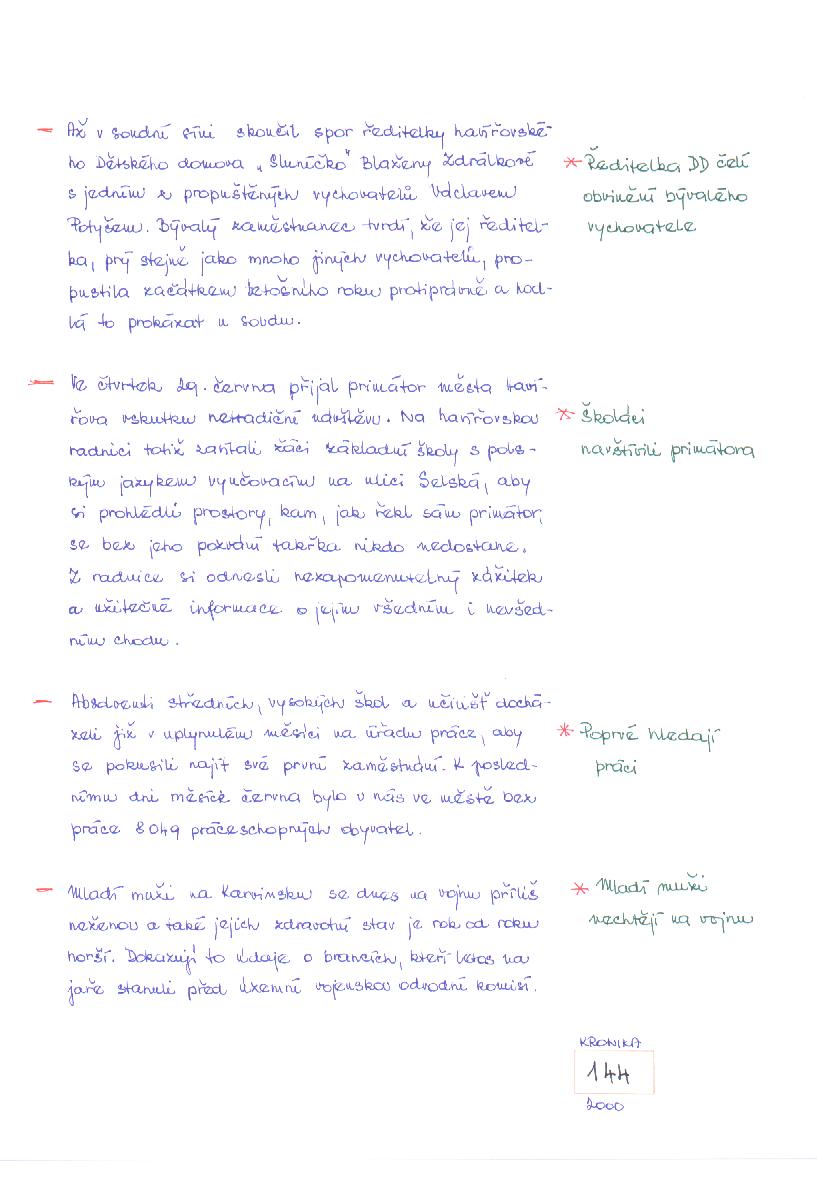 – Až v soudní síni skončil spor ředitelky havířovské-
ho Dětského domova „Sluníčko" Blaženy Zdrálkové
s jedním z propuštěných vychovatelů Václavem
Potyšem. Bývalý zaměstnanec tvrdí, že jej ředitel-
ka, prý stejně jako mnoho jiných vychovatelů, pro-
pustila začátkem letošního roku protiprávně a hod-
lá to prokázat u soudu.
* Ředitelka DD čelí
obvinění bývalého
vychovatele
– Ve čtvrtek 29. června přijal primátor města Haví-
řova vskutku netradiční návštěvu. Na havířovskou
radnici totiž zavítali žáci základní školy s pols-
kým jazykem vyučovacím na ulici Selská, aby
si prohlédli prostory, kam, jak řekl sám primátor,
se bez jeho pozvání takřka nikdo nedostane.
Z radnice si odnesli nezapomenutelný zážitek
a užitečné informace o jejím všedním i nevšed-
ním chodu.
* Školáci
navštívili primátora
– Absolventi středních, vysokých škol a učilišť dochá-
zeli již v uplynulém měsíci na úřadu práce, aby
se pokusili najít své první zaměstnání. K posled-
nímu dni měsíce června bylo u nás ve městě bez
práce 8 049 práceschopných obyvatel.
* Poprvé hledají
práci
– Mladí muži na Karvinsku se dnes na vojnu příliš
neženou a také jejich zdravotní stav je rok od roku
horší. Dokazují to údaje o brancích, kteří letos na
jaře stanuli před územní vojenskou odvodní komisí.
* Mladí muži
nechtějí na vojnu
KRONIKA
144
2000